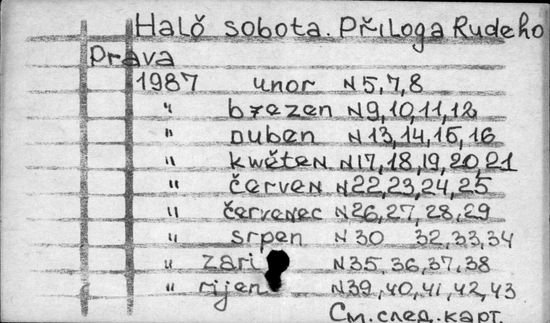 Haló sobota. Přiloga Rudeho
Prava
1987 unor N5,7,8
" březen N9,10,11,12
" Duben N13,14,15,16
" kwěten N17,18,19,20,21
" červen N22,23,24,25
" červenec N26,27,28,29
" srpen N30 32,33,34
" zari N35,36,37,38
" rijen N39,40,41,42,43
См.след.карт.